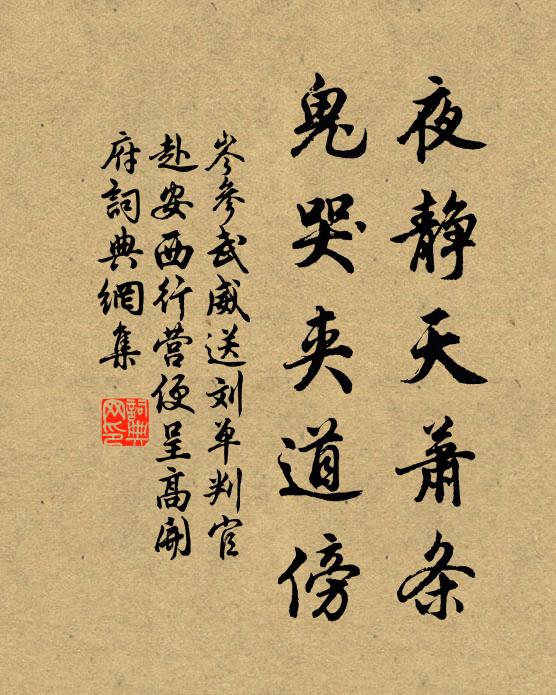 夜静天萧条
鬼哭夹道傍
岑参武威送刘单判官
赴安西行营便呈高开
府詞典網集
詞典
网印